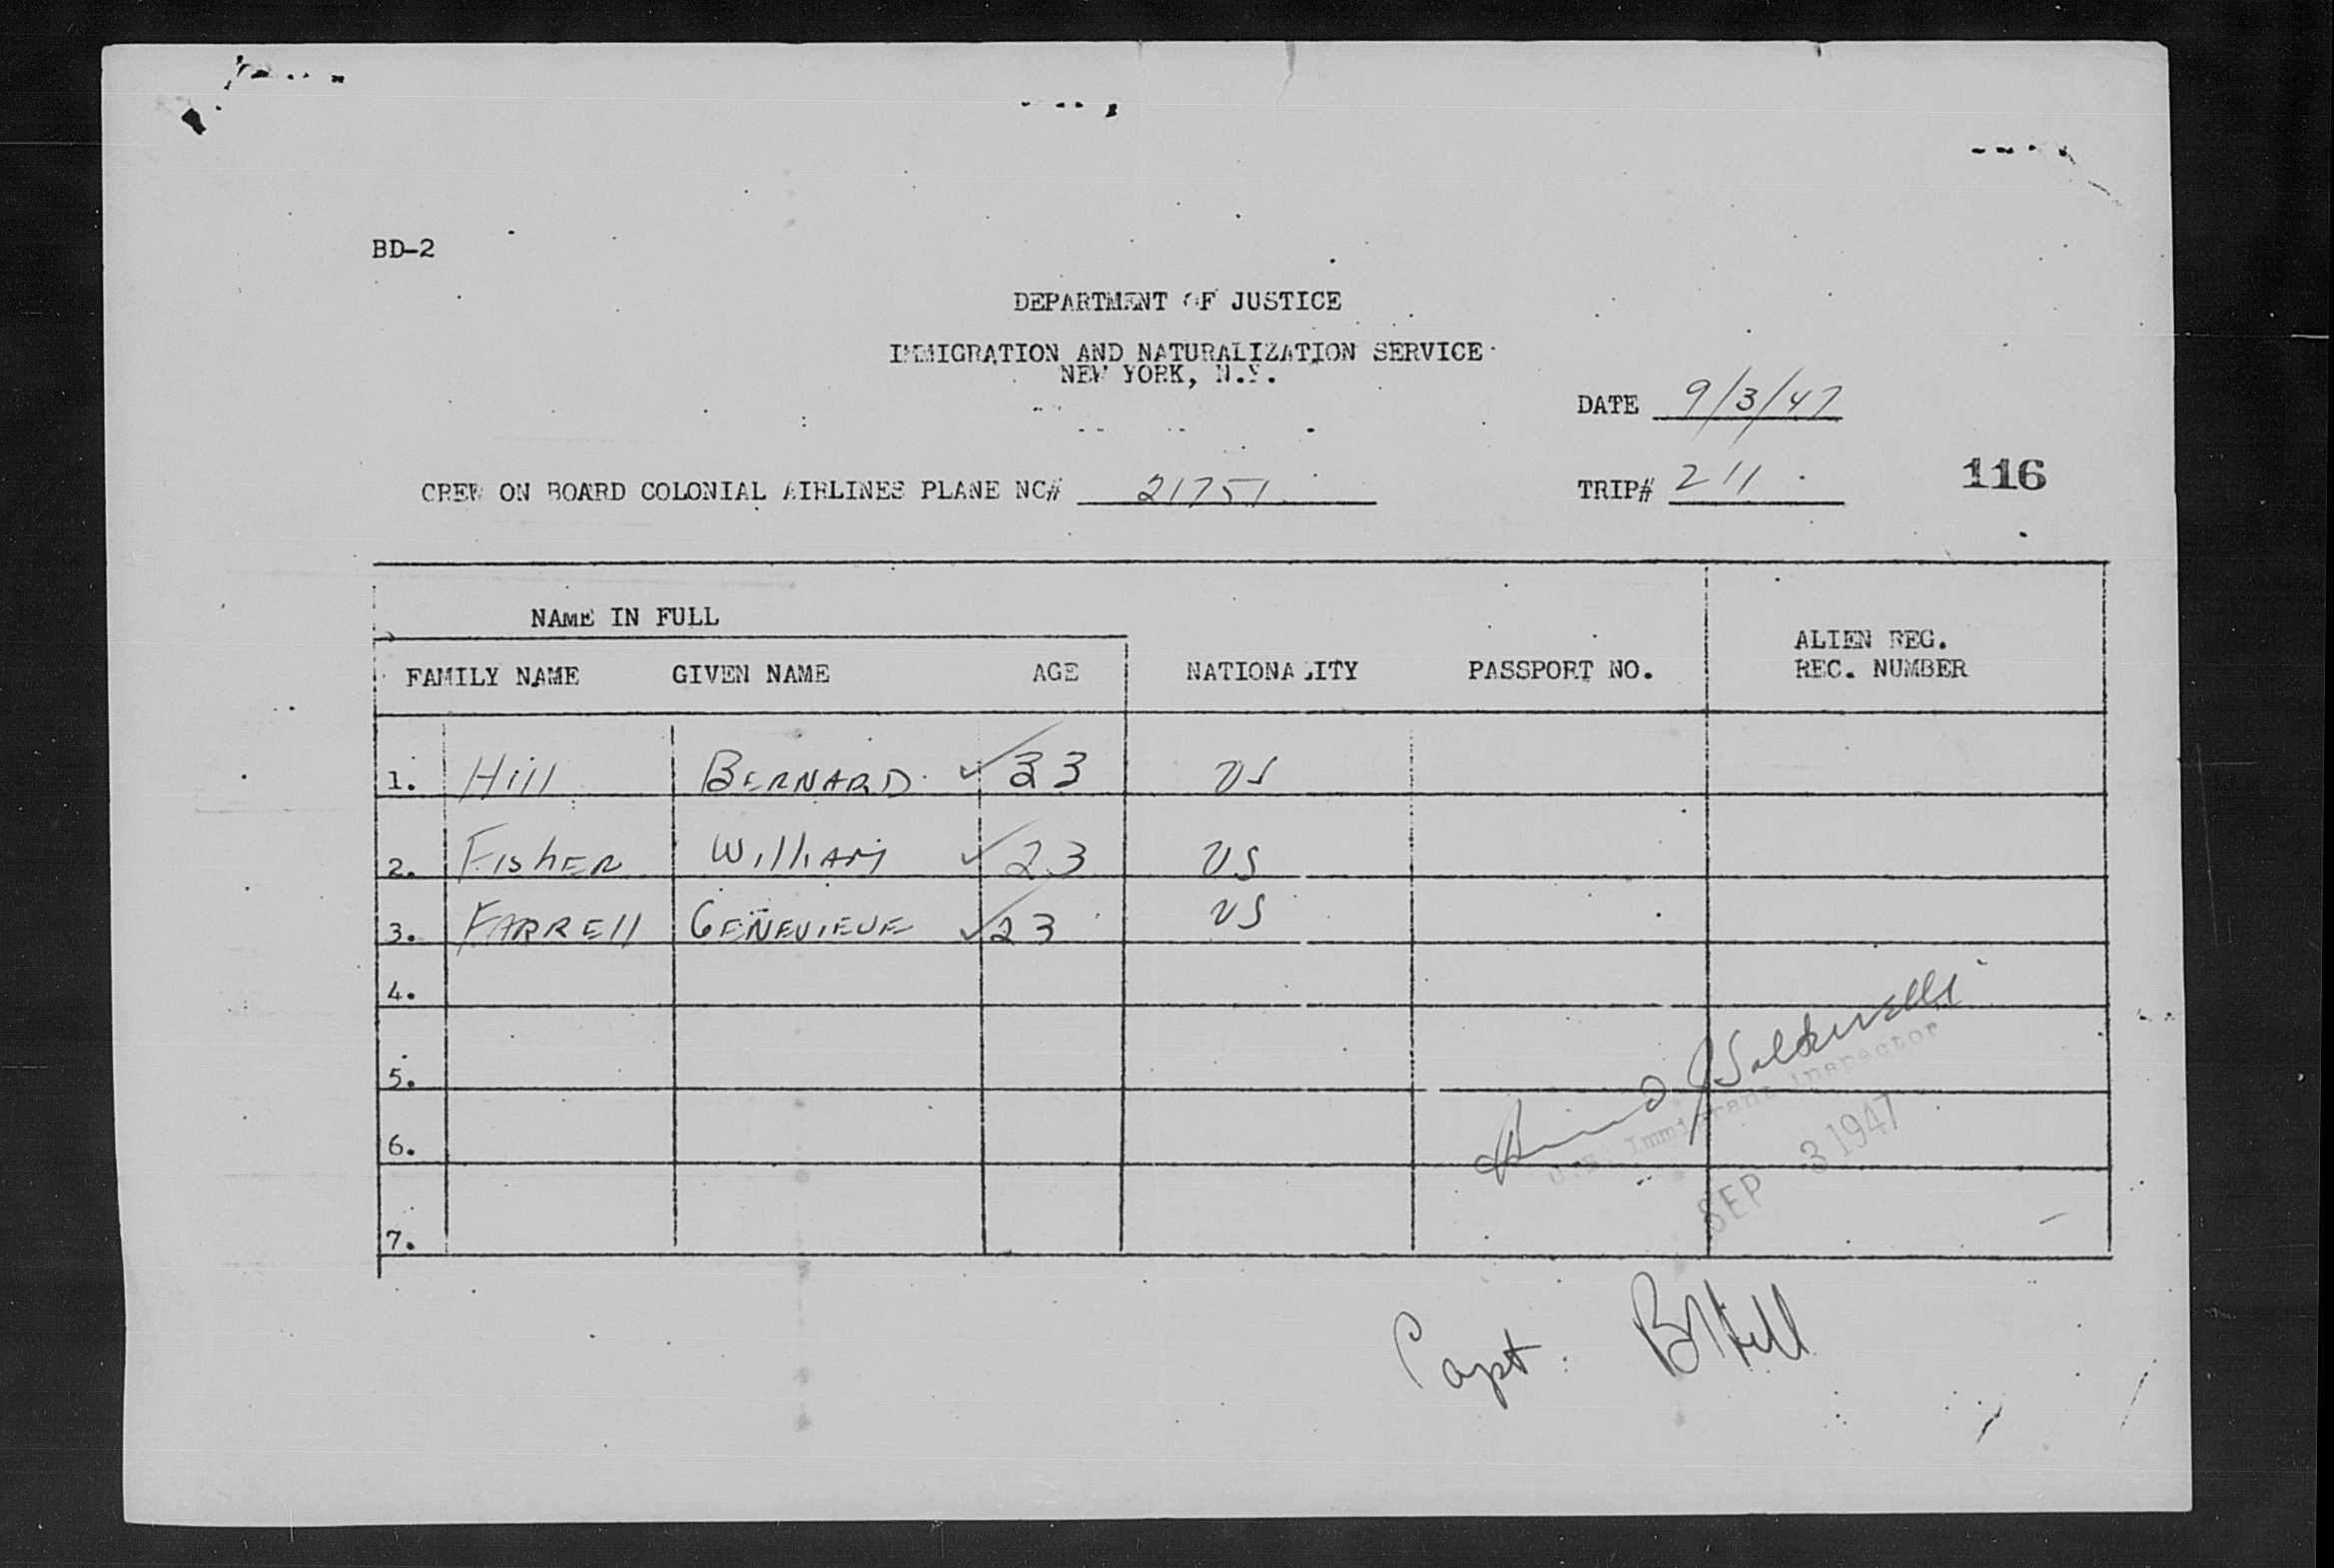 BD-2
DEPARTMENT OF JUSTICE
IMMIGRATION AND NATURALIZATION SERVICE
NEW YORK, N.Y.
DATE 9/3/47
CREW ON BOARD COLONIAL AIRLINES PLANE NC# 21751
TRIP# 211
116
NAME IN FULL
FAMILY NAME GIVEN NAME AGE NATIONALITY PASSPORT NO. ALIEN REG. REC. NUMBER
1. Hill BERNARD ✓ 33 US
2. FishER William ✓ 23 US
3. FARREll GENEVIEVE ✓ 23 US
4.
5.
6.
7.
U.S. Immigrant Inspector
SEP 3 1947
Capt: B Hill